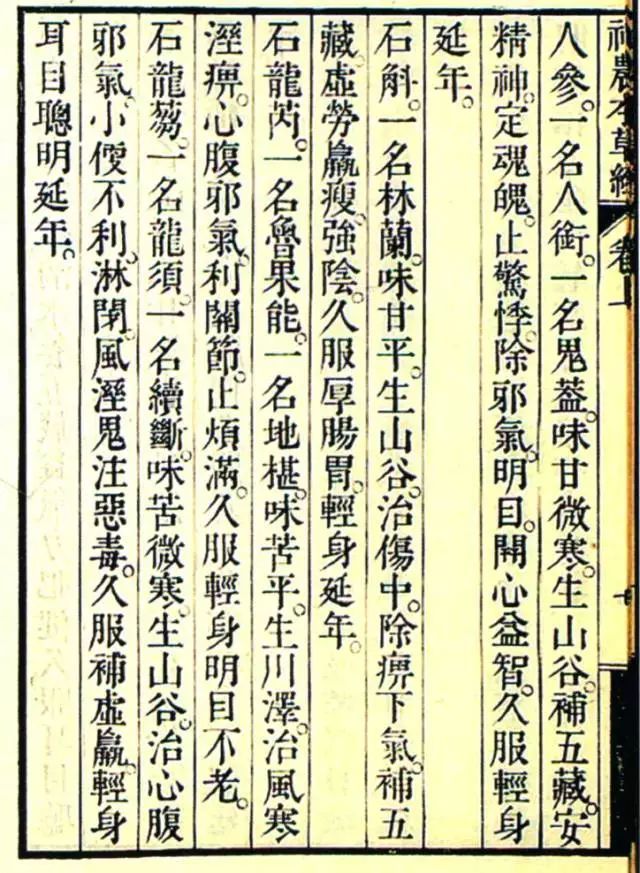 神農本草經 卷一
人參。一名人銜。一名鬼蓋。味甘微寒。生山谷。補五藏。安
精神。定魂魄。止驚悸。除邪氣。明目。開心益智。久服輕身
延年。
石斛。一名林蘭。味甘平。生山谷。治傷中。除痹下氣。補五
藏。虛勞羸瘦。強陰。久服厚腸胃。輕身延年。
石龍芮。一名魯果能。一名地椹。味苦平。生川澤。治風寒
溼痹。心腹邪氣。利關節。止煩滿。久服輕身明目不老。
石龍芻。一名龍須。一名續斷。味苦微寒。生山谷。治心腹
邪氣。小便不利。淋閉。風溼鬼注惡毒。久服補虛羸。輕身
耳目聰明延年。